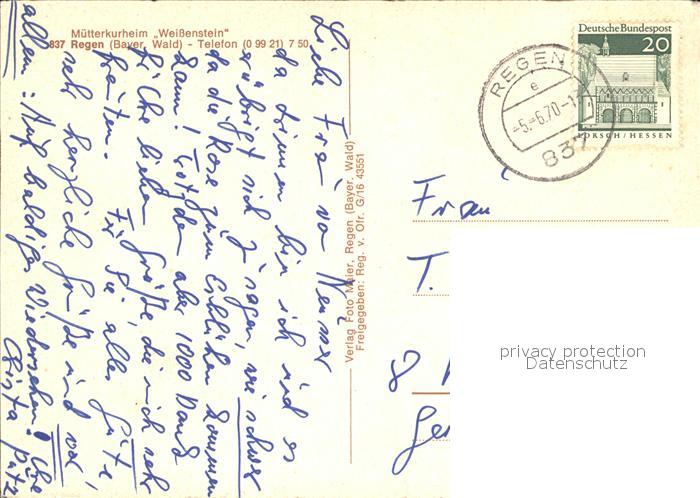 Mütterkurheim „Weißenstein"
837 Regen (Bayer. Wald) - Telefon (0 99 21) 7 50
Liebe Frau von
da drinnen bin ich und es
erübrigt sich zu sagen, wie schwer
da die Rose zum Erblühen kommen
kann! Trotzdem aber 1000 Dank
für Ihre lieben Grüße, die mich sehr
freuten. Für Sie alles Gute
sehr herzliche Grüße und vor
allem: Auf baldiges Wiedersehen! Ihre
Christa
Verlag Foto Maier, Regen (Bayer. Wald)
Freigegeben: Reg. v. Ofr. G/16 43551
REGEN
e
-5.-6.70-1
837
Deutsche Bundespost
20
LORSCH/HESSEN
Frau
T.
8
Ger
privacy protection
Datenschutz